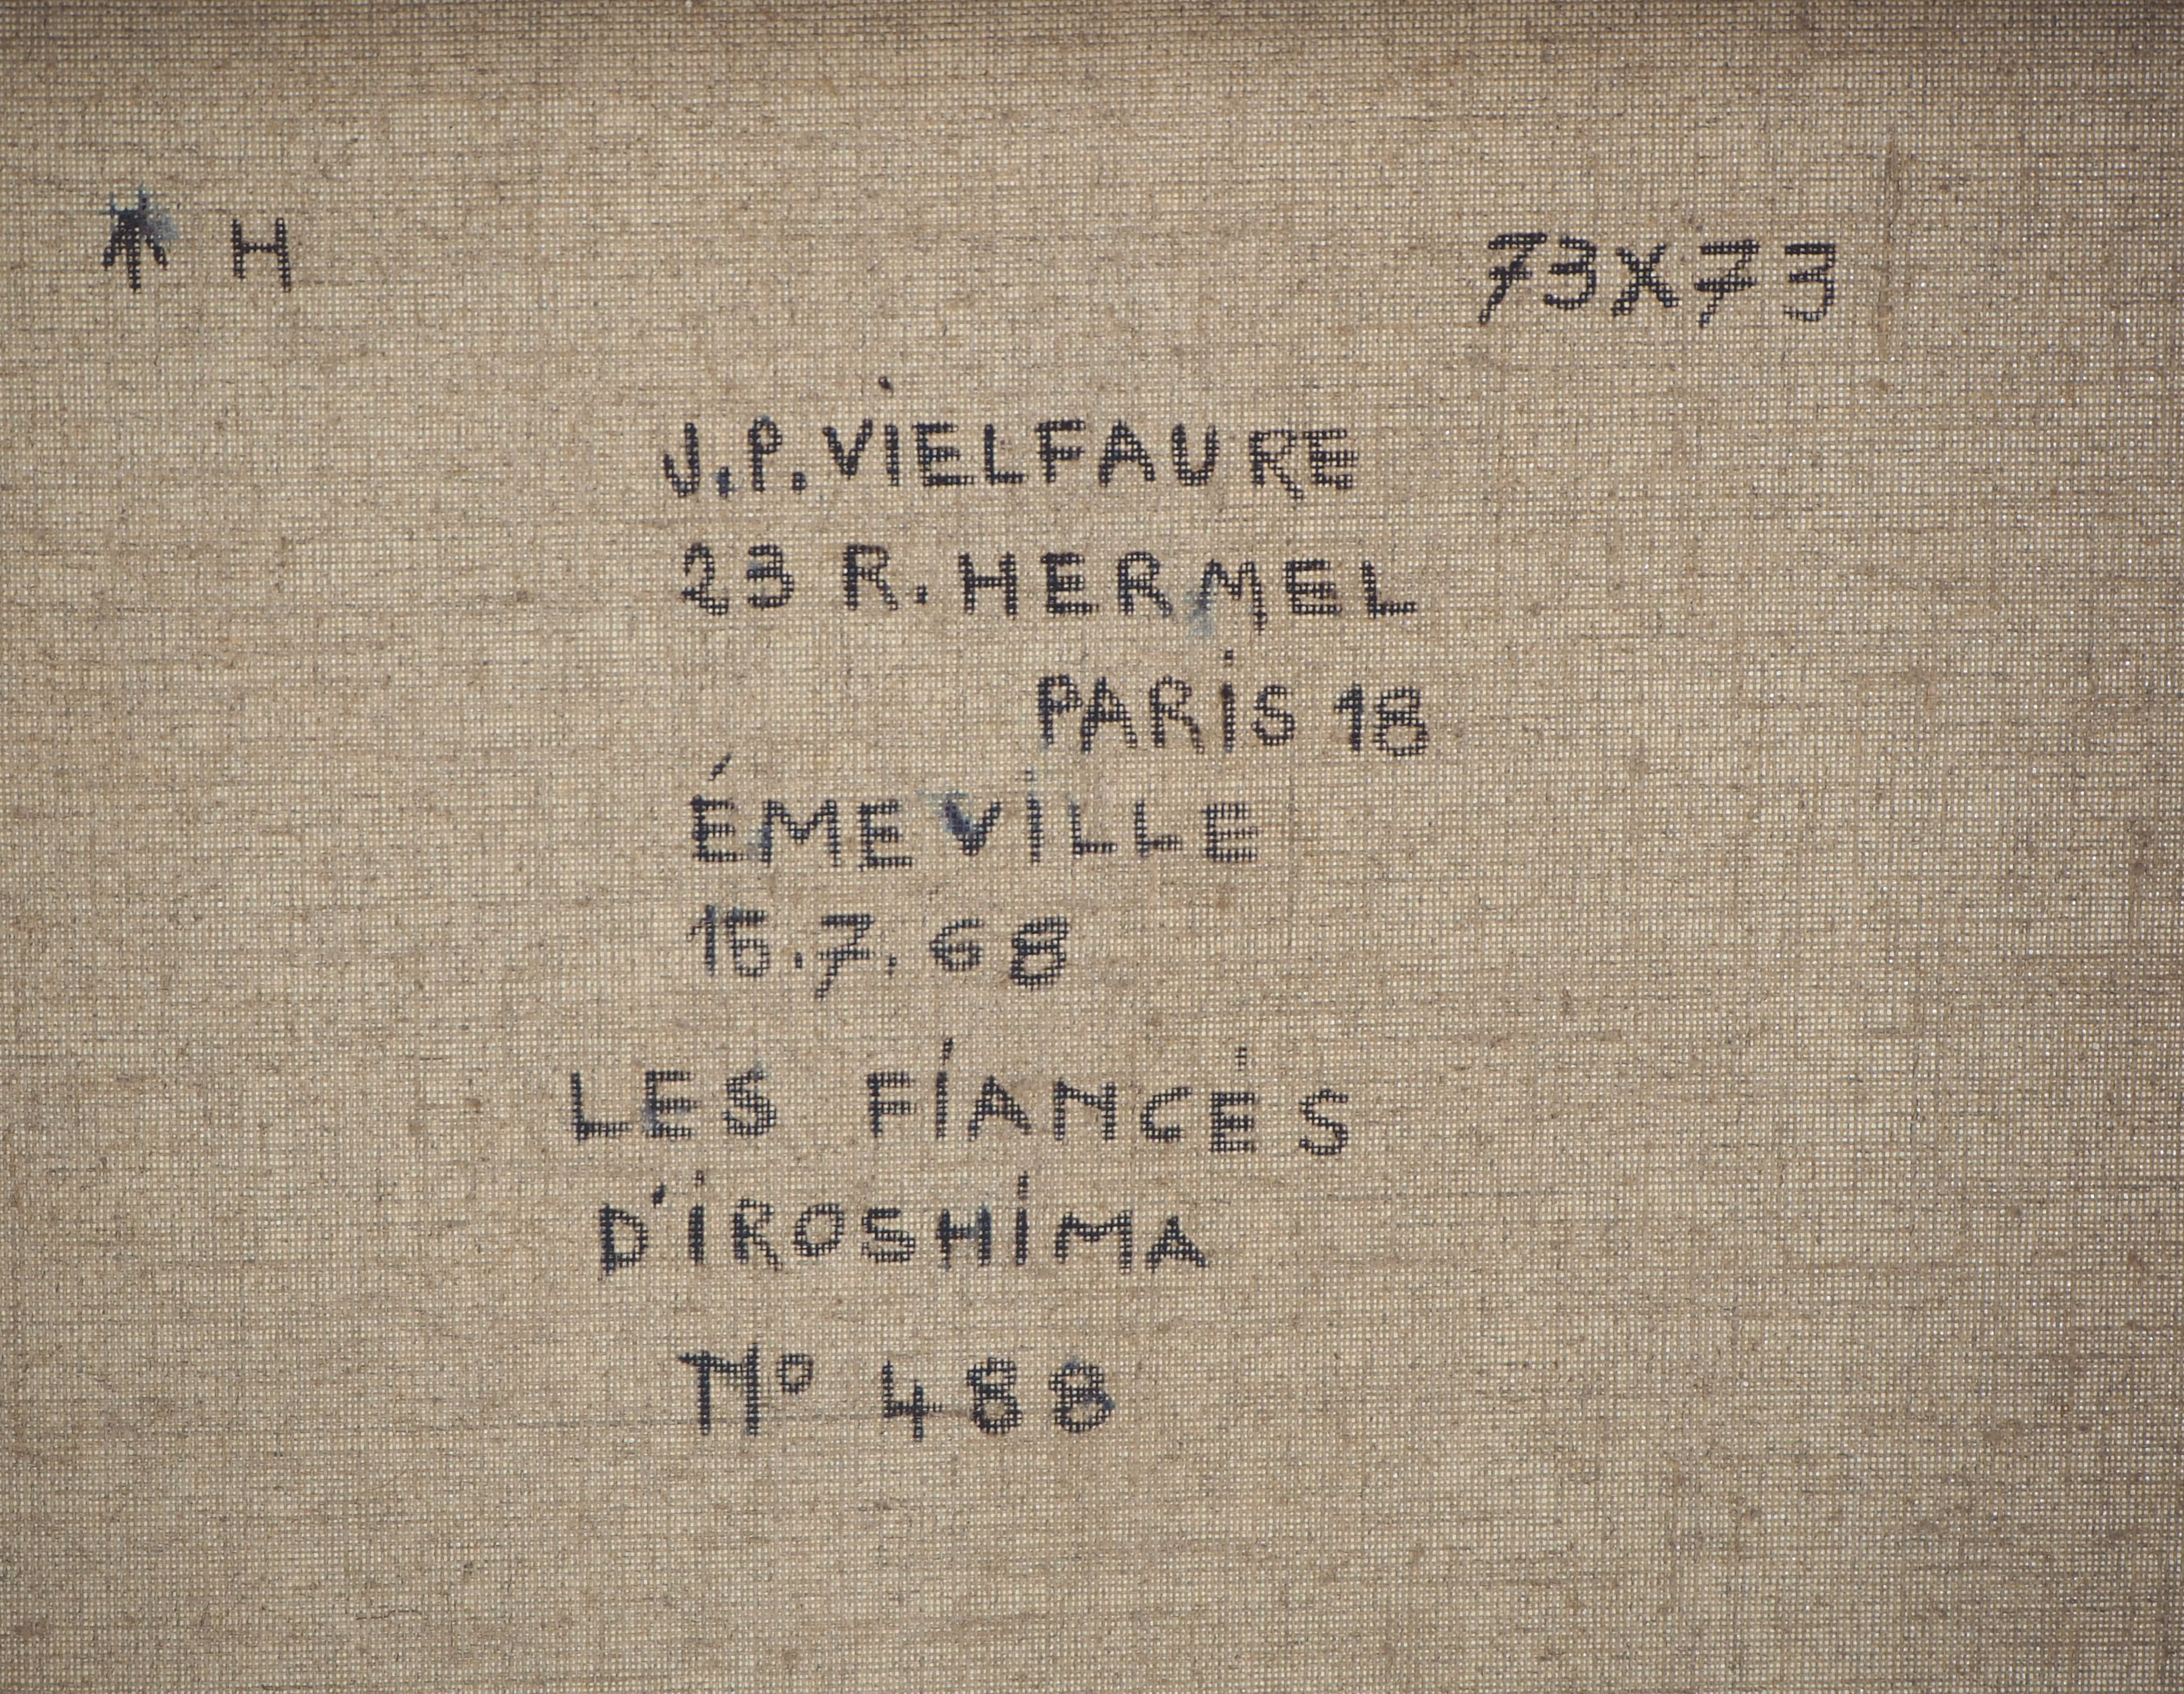 ↑ H
73X73
J.P. VIELFAURE
23 R. HERMEL
PARIS 18
ÉMEVILLE
15.7.68
LES FIANCÉS
D'IROSHIMA
Nº 488